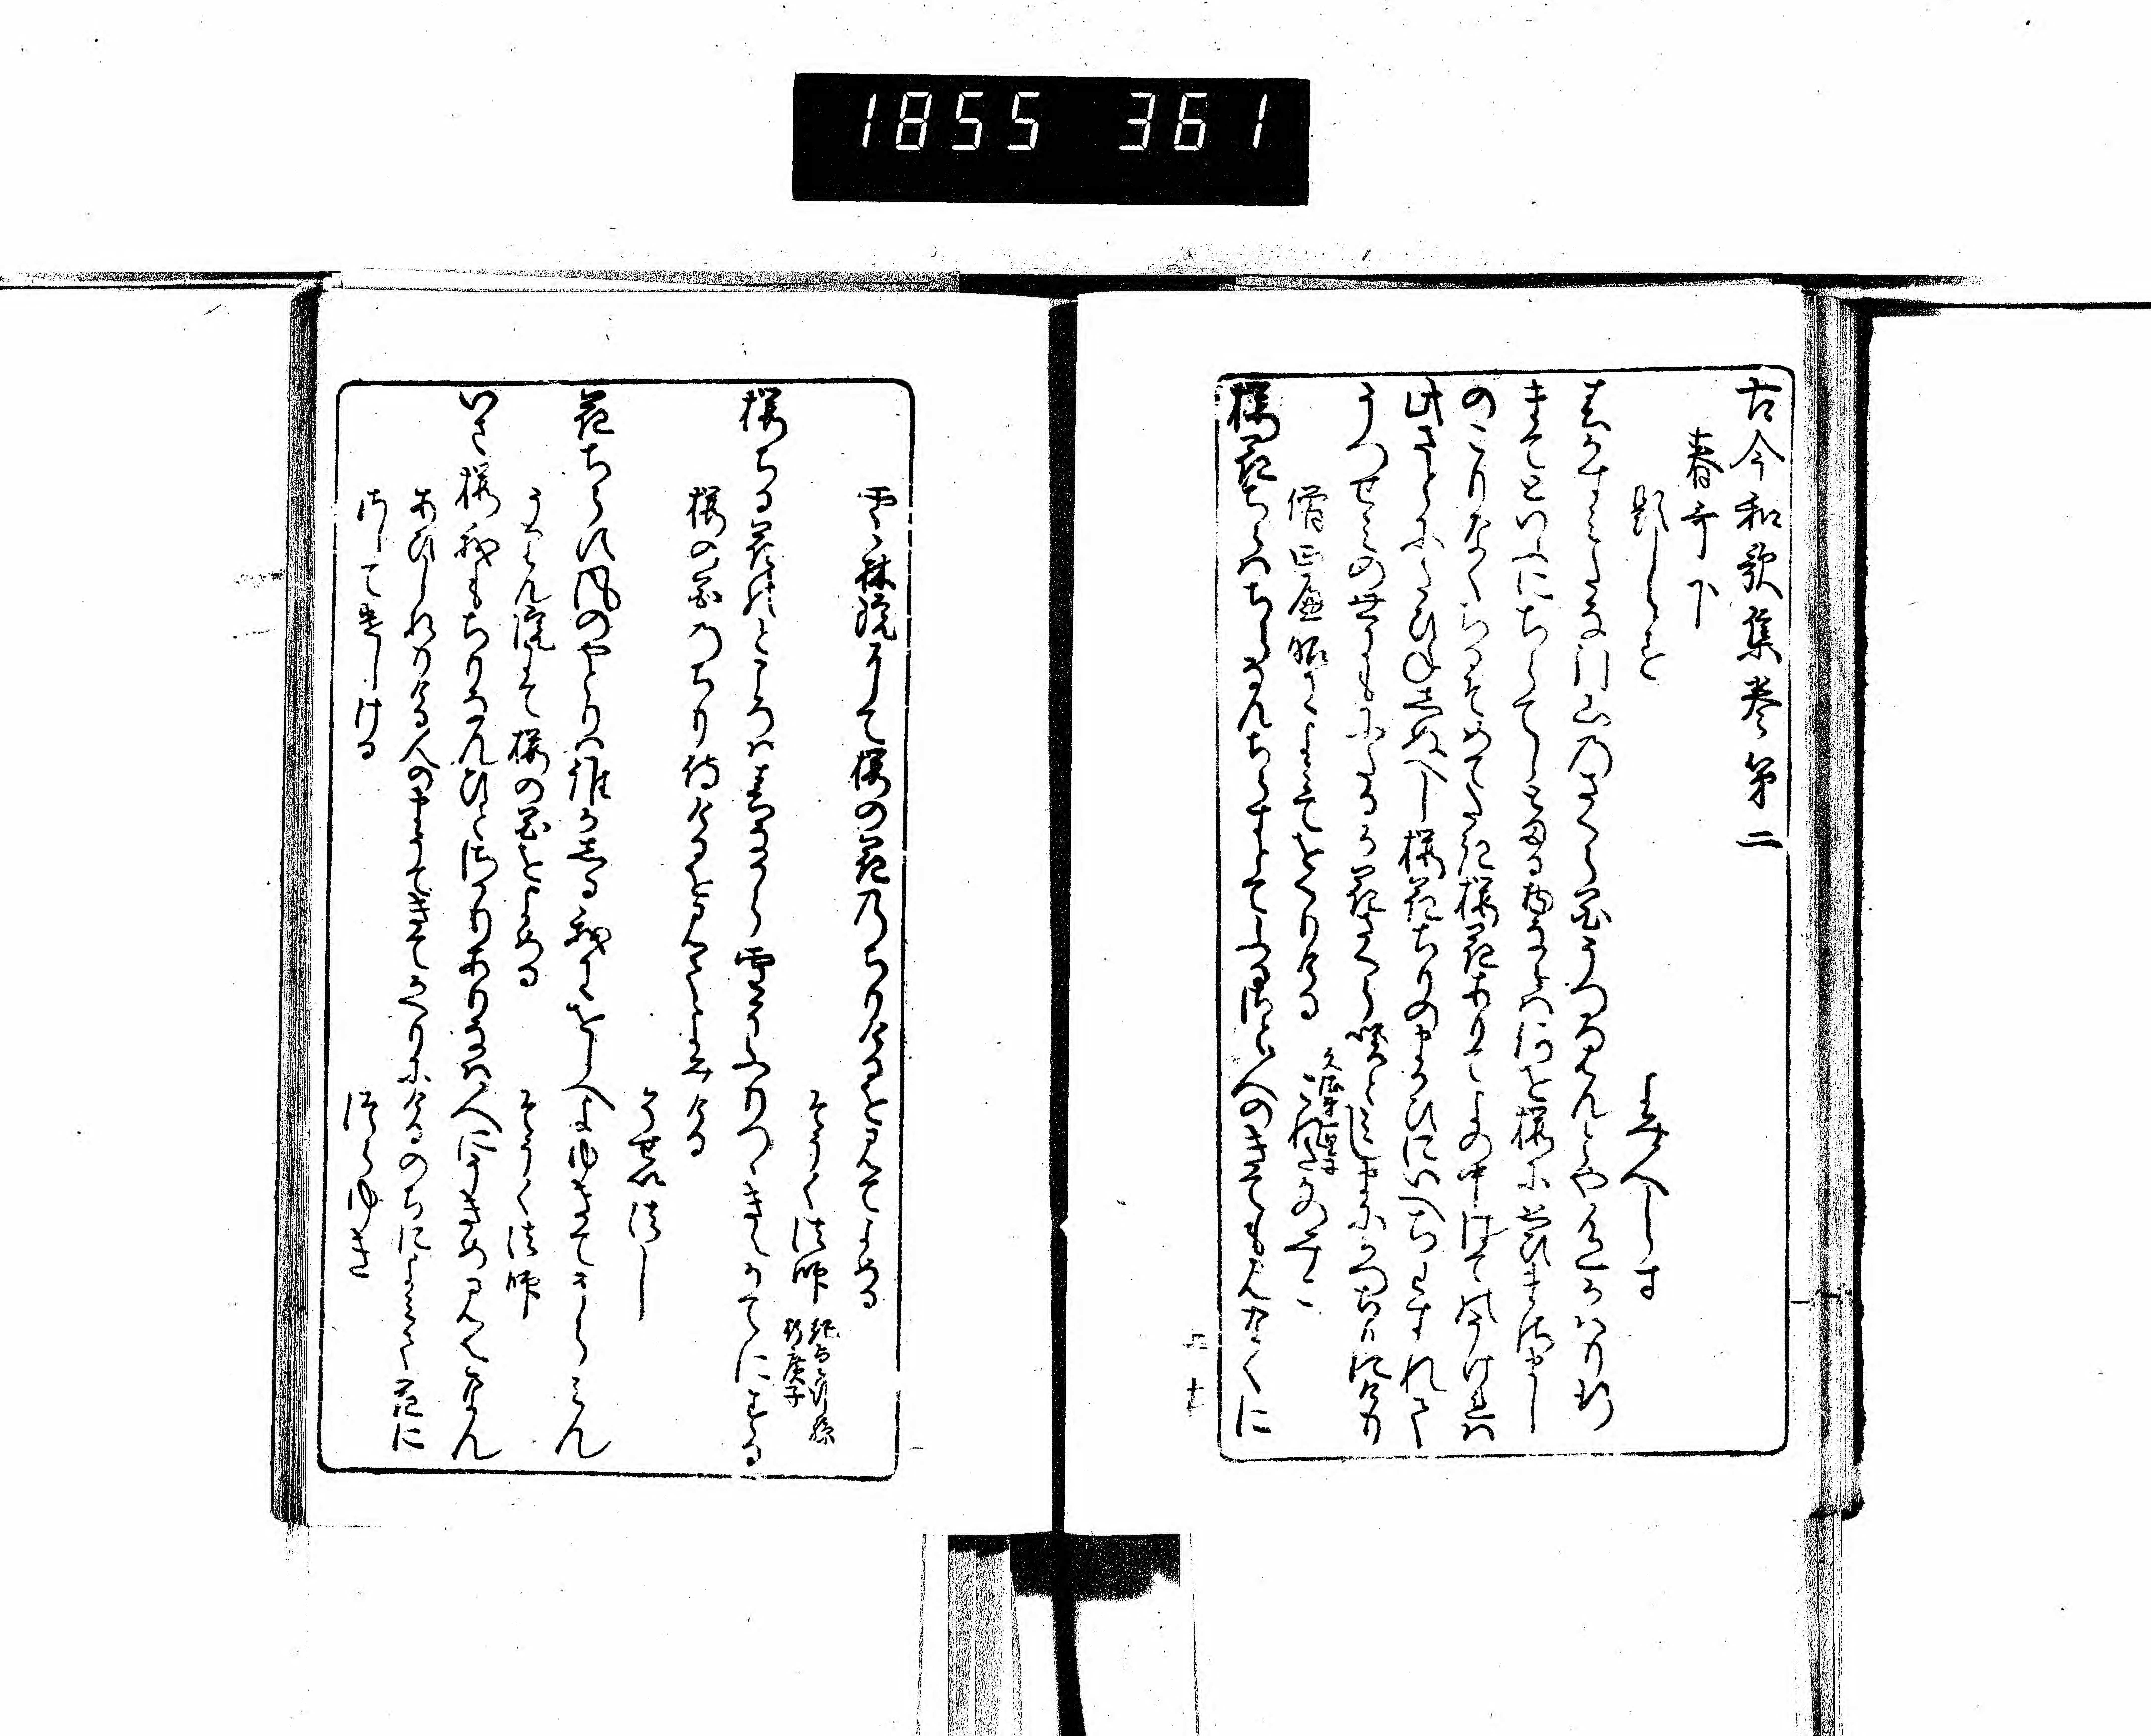 1855 361
古今和歌集巻第二
春哥下
題しらす
よみ人しらす
春かすみたな引山のさくら花うつろはんとや色かはり行
まてといふにちらてしとまる物ならは何を桜に思ひまさまし
のこりなくちるそめてたき桜花ありてよの中はて のうけれは
此さとにたひねしぬへし桜花ちりのまかひにいへちわすれて
うつせみの世にもにたるか花さくら咲とみしまにかつちりにけり
僧正遍昭によみてをくりける
これたかのみこ
桜花ちらはちらなんちらすとてふるさと人のきてもみなくに
雲林院にて桜の花のちりけるを見てよめる
そうく法師
桜ちる花のところは春なから雪そふりつゝきえかてにする
桜の花のちり侍けるを見てよみける
そせい法し
花ちらす風のやとりは誰かしる我にをしへよゆきてうらみん
うりん院にて桜の花をよめる
そうく法師
いさ桜我もちりなんひとさかりありなは人にうきめみえなん
あひしれりける人のまうてきてかへりにけるのちによみて花に
さしてつかはしける
つらゆき